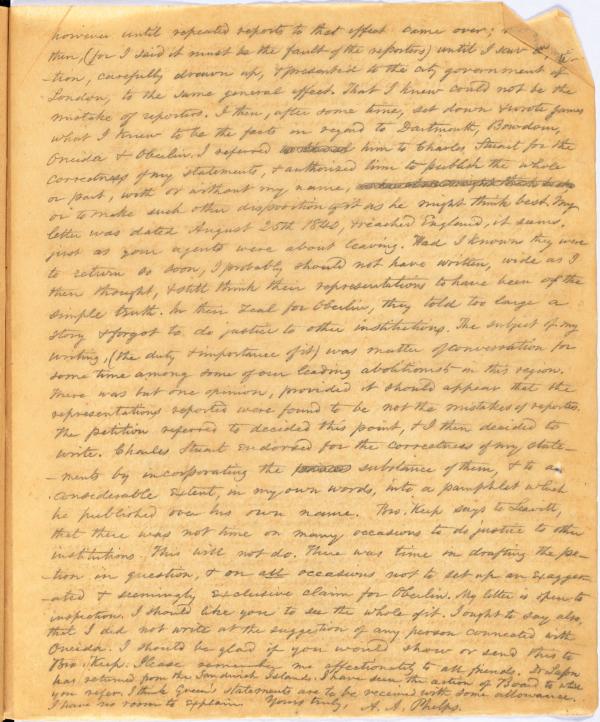 however until repeated reports to that effect came over;
then, (for I said it must be the fault of the reporters) until I saw a
-tion, carefully drawn up, & presented to the city government of
London, to the same general effect. That I knew could not be the
mistake of reporters. I then, after some time, set down & wrote James
what I knew to be the facts in regard to Dartmouth, Bowdoin,
Oneida & Oberlin. I referred him to Charles Stuart for the
correctness of my statements, & authorized him to publish the whole
or part, with or without my name,
or to make such other disposition of it as he might think best. My
letter was dated August 25th 1840, & reached England, it seems,
just as your agents were about leaving. Had I known they were
to return so soon, I probably should not have written, wide as I
then thought, & still think their representations to have been of the
simple truth. In their zeal for Oberlin, they told too large a
story & forgot to do justice to other institutions. The subject of my
writing, (the duty & importance of it) was matter of conversation for
some time among some of our leading abolitionists in this region.
There was but one opinion, provided it should appear that the
representations reported were found to be not the mistakes of reporters.
The petition referred to decided this point, & I then decided to
write. Charles Stuart endorsed for the correctness of my state-
-ments by incorporating the substance of them, & to a
considerable extent, in my own words, into a pamphlet which
he published over his own name. Bro. Keep says to Leavitt,
that there was not time on many occasions to do justice to other
institutions. This will not do. There was time in drafting the pe-
-tion in question, & on all occasions not to set up an exagger-
-ated & seemingly exclusive claim for Oberlin. My letter is open to
inspection. I should like you to see the whole of it. I ought to say also,
that I did not write at the suggestion of any person connected with
Oneida. I should be glad if you would show or send this to
Bro. Keep. Please remember me affectionately to all friends. Dr Lafon
has returned from the Sandwich Islands. I have seen the action of Board to which
you refer. I think Green's statements are to be received with some allowance.
I have no room to explain. Yours truly, A. A. Phelps.